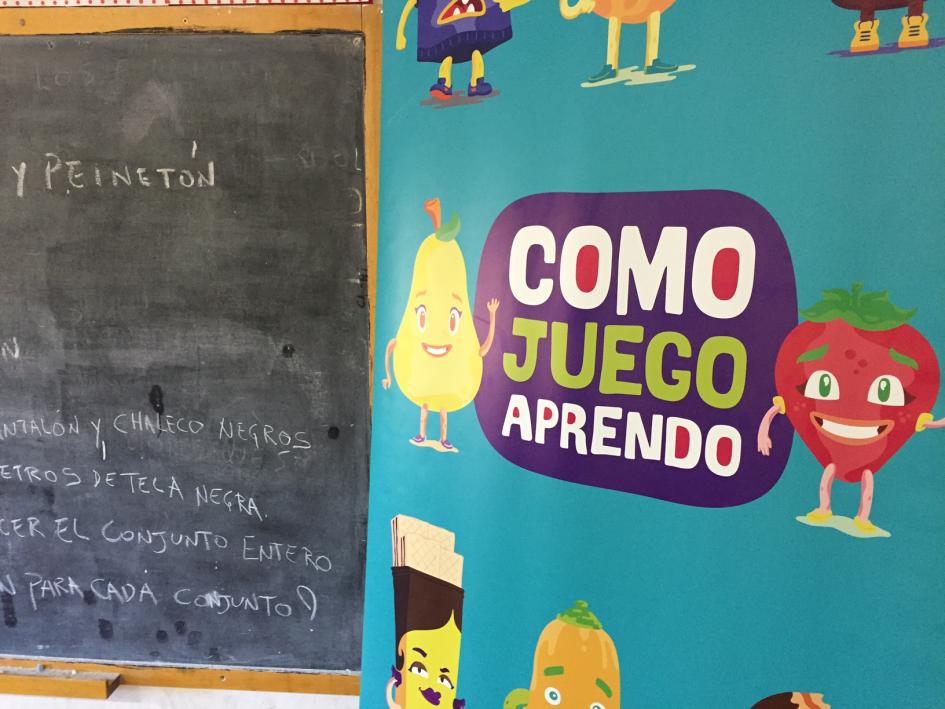 Y PEINETÓN
N
NTALÓN Y CHALECO NEGROS
ETROS DE TELA NEGRA.
CER EL CONJUNTO ENTERO
N PARA CADA CONJUNTO?
COMO
JUEGO
APRENDO